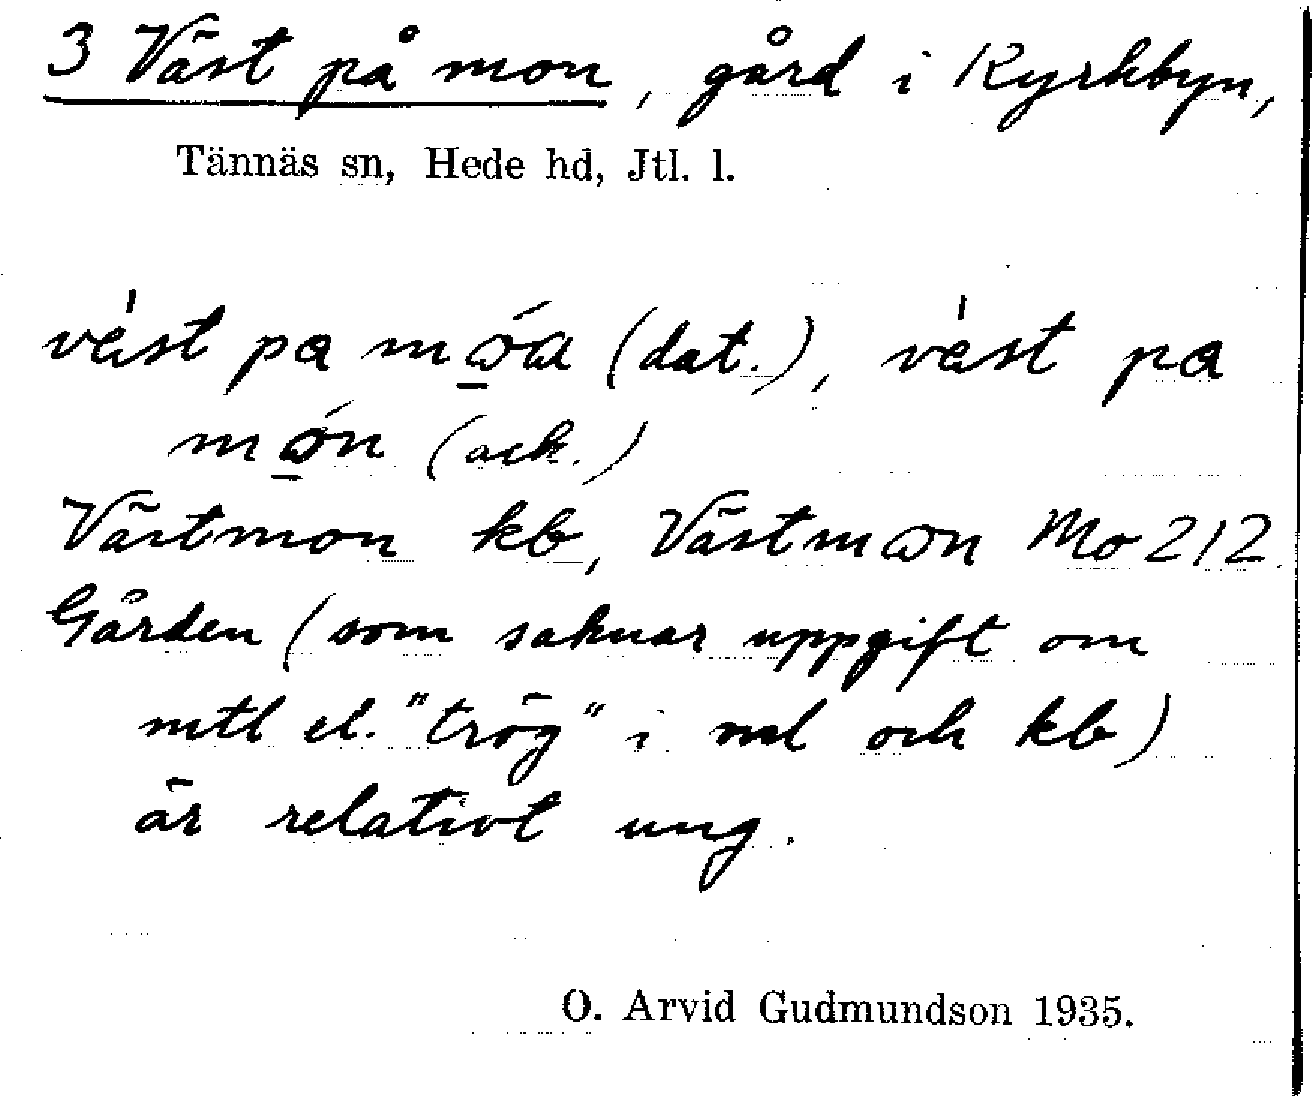 3 Väst på mon, gård i Kyrkbyn,
Tännäs sn, Hede hd, Jtl. l.
väst pa (dat.), väst pa
(ack.)
Västmon kb, Västman Mo 212.
Gården (som saknar uppgift om
mtl el. "trög" i ml och kb)
är relativt ung.
O. Arvid Gudmundson 1935.